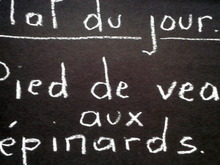 lat du jour.
Pied de vea
aux
épinards.